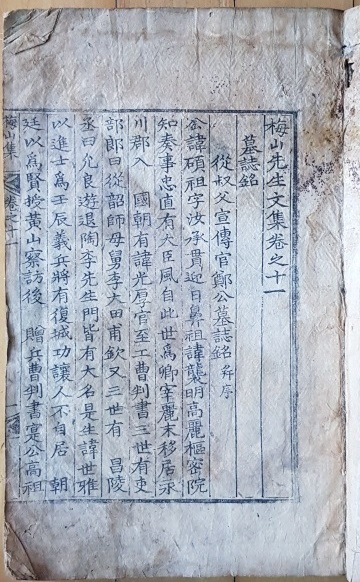 梅山先生文集卷之十一
墓誌銘
從叔父宣傳官鄭公墓誌銘 幷序
公諱碩祖字汝承貫迎日鼻祖諱襲明高麗樞密院
知奏事忠直有大臣風自此世爲卿宰麗末移居永
川郡入 國朝有諱光厚官至工曹判書三世有吏
部郎曰從韶師母舅李大田甫欽又三世有 昌陵
丞曰允良遊退陶李先生門皆有大名是生諱世雅
以進士爲壬辰義兵將有復城功讓人不自居 朝
廷以爲賢授黃山察訪後 贈兵曹判書寔公高祖
梅山集 卷之十一 一